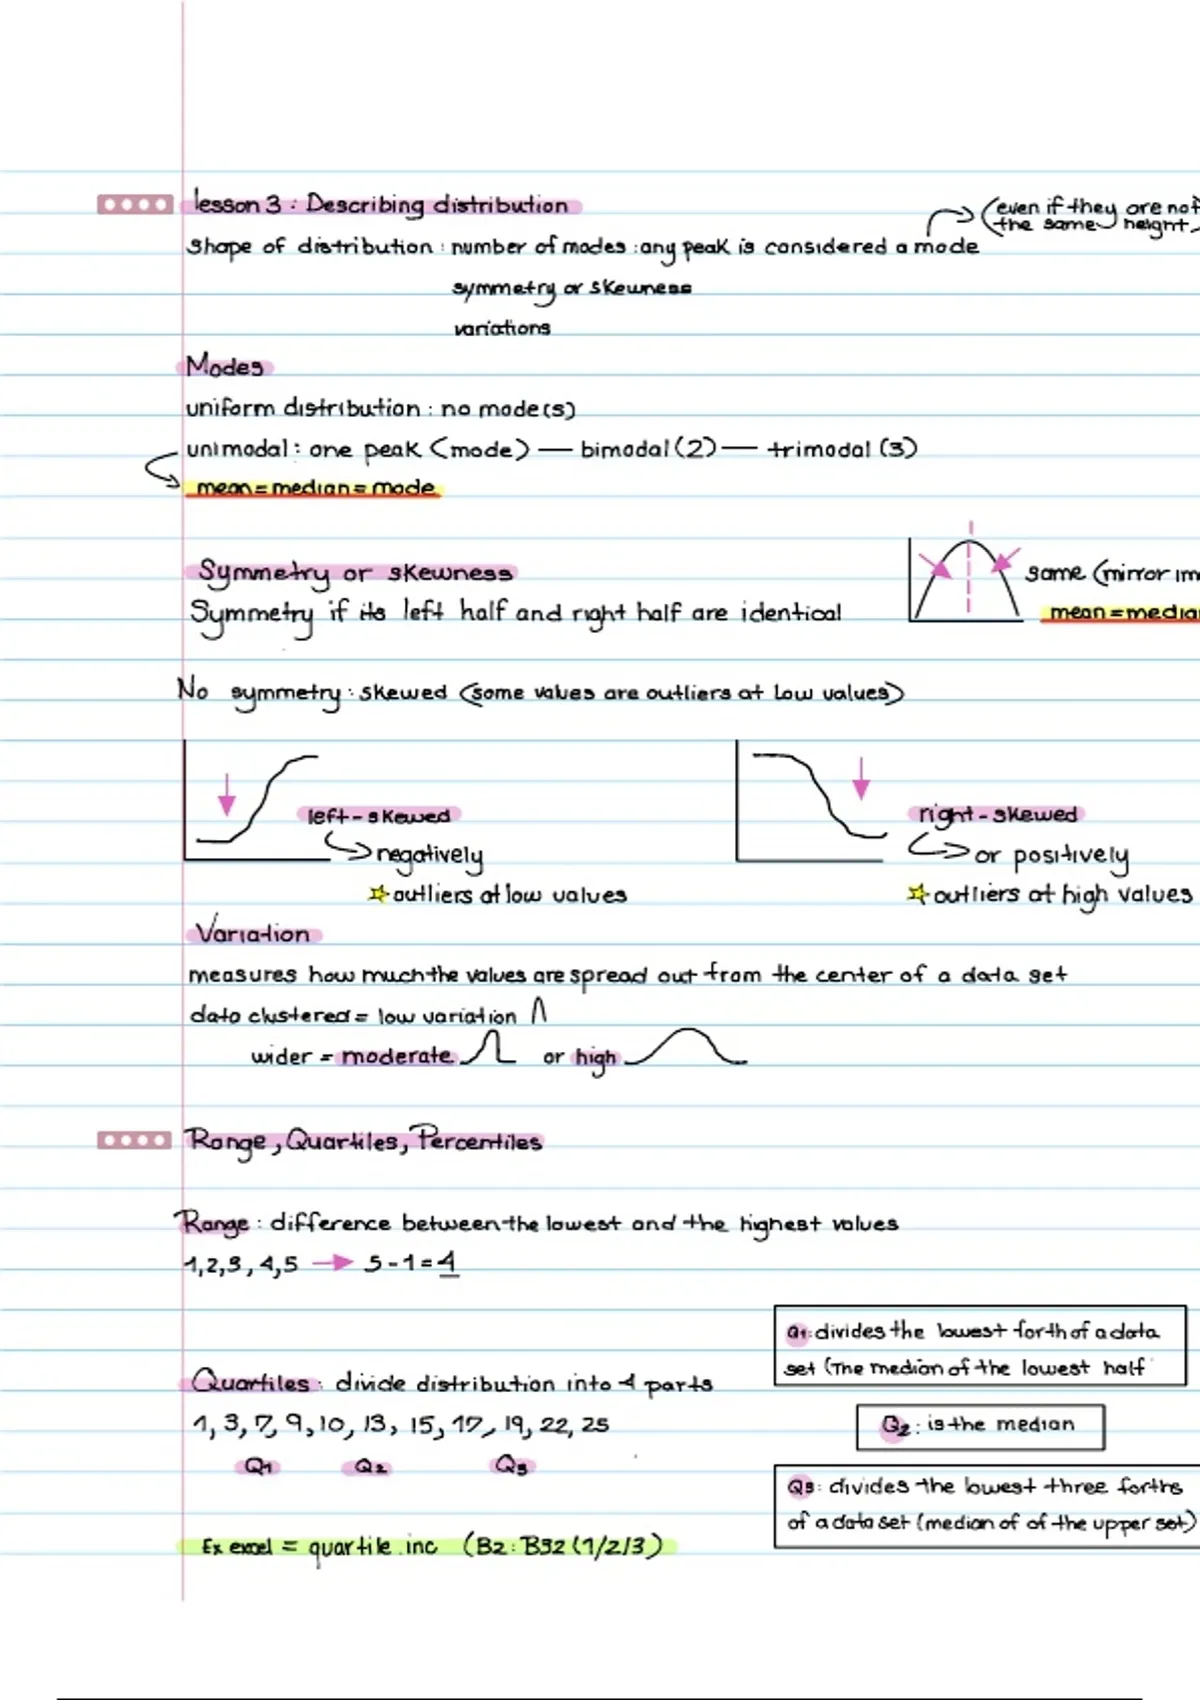 lesson 3 : Describing distribution
(even if they are not
the same height
shape of distribution : number of modes : any peak is considered a mode
symmetry or skewness
variations
Modes
uniform distribution : no mode(s)
unimodal : one peak (mode) — bimodal (2) — trimodal (3)
mean = median = mode
Symmetry or skewness
same (mirror im
Symmetry if its left half and right half are identical
mean = media
No symmetry : skewed (some values are outliers at low values)
left - skewed
right - skewed
negatively
or positively
outliers at low values
outliers at high values
Variation
measures how much the values are spread out from the center of a data set
data clustered = low variation
wider = moderate or high
Range, Quartiles, Percentiles
Range : difference between the lowest and the highest values
1,2,3,4,5 → 5-1=4
Q1: divides the lowest forth of a data
set (The median of the lowest half
Quartiles : divide distribution into 4 parts
1, 3, 7, 9, 10, 13, 15, 17, 19, 22, 25
Q2 : is the median
Q1 Q2 Q3
Q3: divides the lowest three forths
of a data set (median of of the upper set)
Ex excel = quartile.inc (B2:B32(1/2/3)